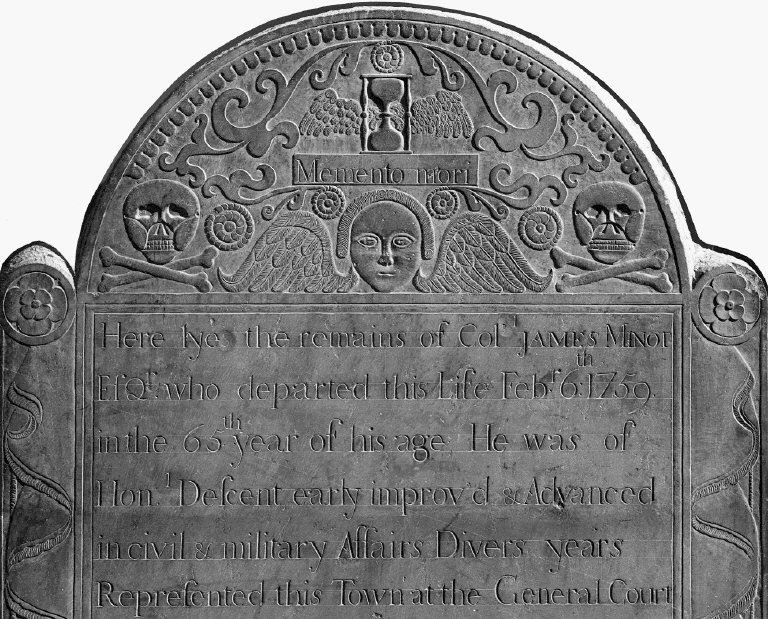 Memento mori
Here lyes the remains of Colˡ JAMES MINOT
EſQʳ. who departed this Life Febʳ 6ᵗʰ 1759.
in the 65ᵗʰ year of his age. He was of
Honˡ Deſcent, early improv'd & Advanced
in civil & military Affairs Divers years
Repreſented this Town at the General Court